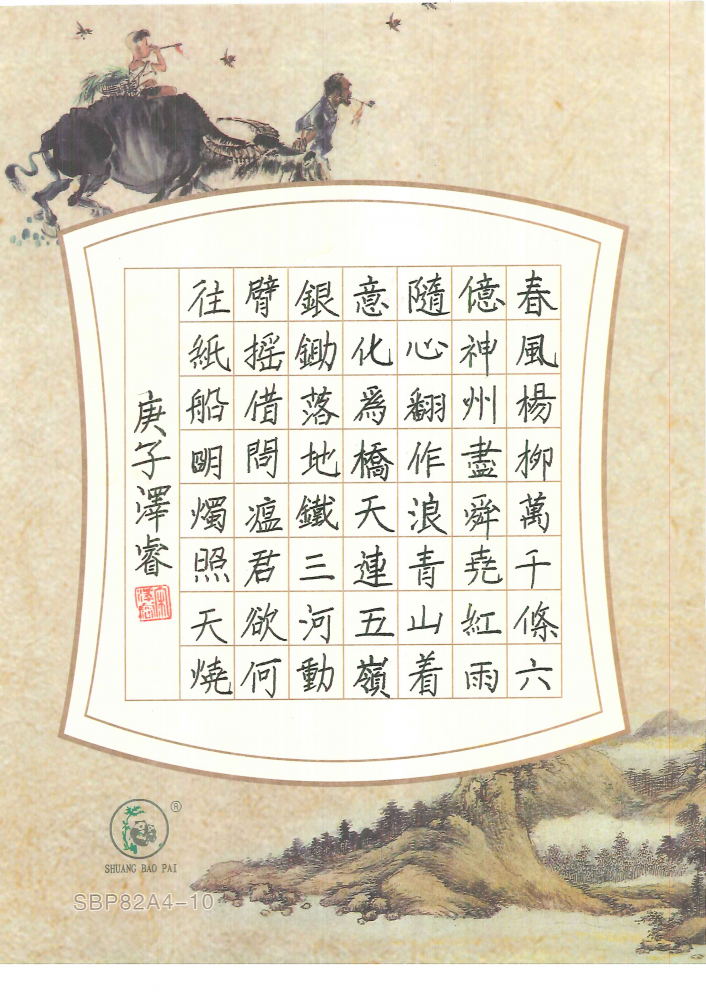 春風楊柳萬千條六
億神州盡舜堯紅雨
隨心翻作浪青山着
意化爲橋天連五嶺
銀鋤落地鐵三河動
臂摇借問瘟君欲何
往紙船明燭照天燒
庚子澤睿
SHUANG BAO PAI
®
SBP82A4-10